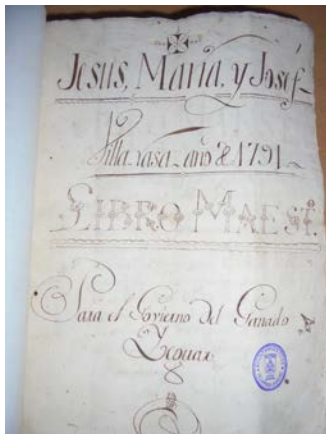 Jesus, Maria, y Josef
Villa rasa año de 1791
LIBRO MAEST.
Para el Govierno Del Ganado
Yeguar